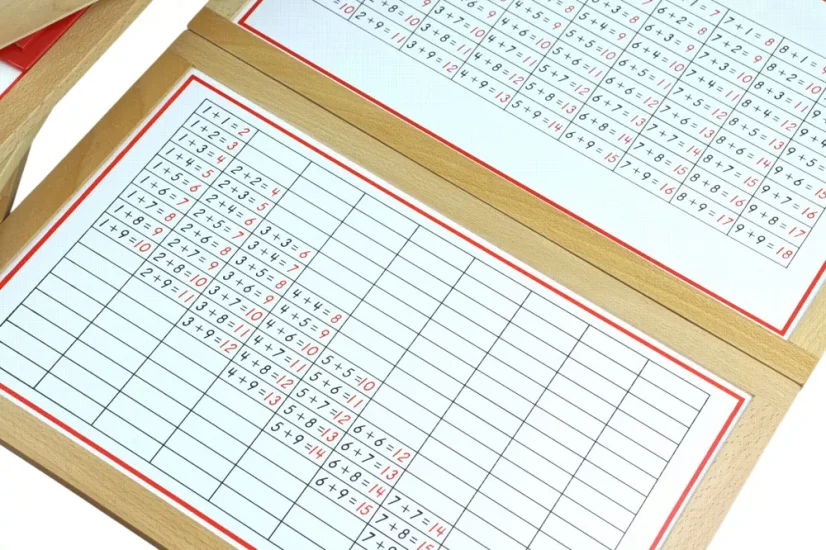 10
2+8=10
2+9=11
3+7=10
3+8=11
3+9=12
4+5=9
4+6=10
4+7=11
4+8=12
4+9=13
5+3=8
5+4=9
5+5=10
5+6=11
5+7=12
5+8=13
5+9=14
6+2=8
6+3=9
6+4=10
6+5=11
6+6=12
6+7=13
6+8=14
6+9=15
7+1=8
7+2=9
7+3=10
7+4=11
7+5=12
7+6=13
7+7=14
7+8=15
7+9=16
8+1=9
8+2=10
8+3=11
8+4=12
8+5=13
8+6=14
8+7=15
8+8=16
8+9=17
9+7=16
9+8=17
9+9=18
1+1=2
1+2=3
1+3=4
1+4=5
1+5=6
1+6=7
1+7=8
1+8=9
1+9=10
2+2=4
2+3=5
2+4=6
2+5=7
2+6=8
2+7=9
2+8=10
2+9=11
3+3=6
3+4=7
3+5=8
3+6=9
3+7=10
3+8=11
3+9=12
4+4=8
4+5=9
4+6=10
4+7=11
4+8=12
4+9=13
5+5=10
5+6=11
5+7=12
5+8=13
5+9=14
6+6=12
6+7=13
6+8=14
6+9=15
7+7=14
7+8=15